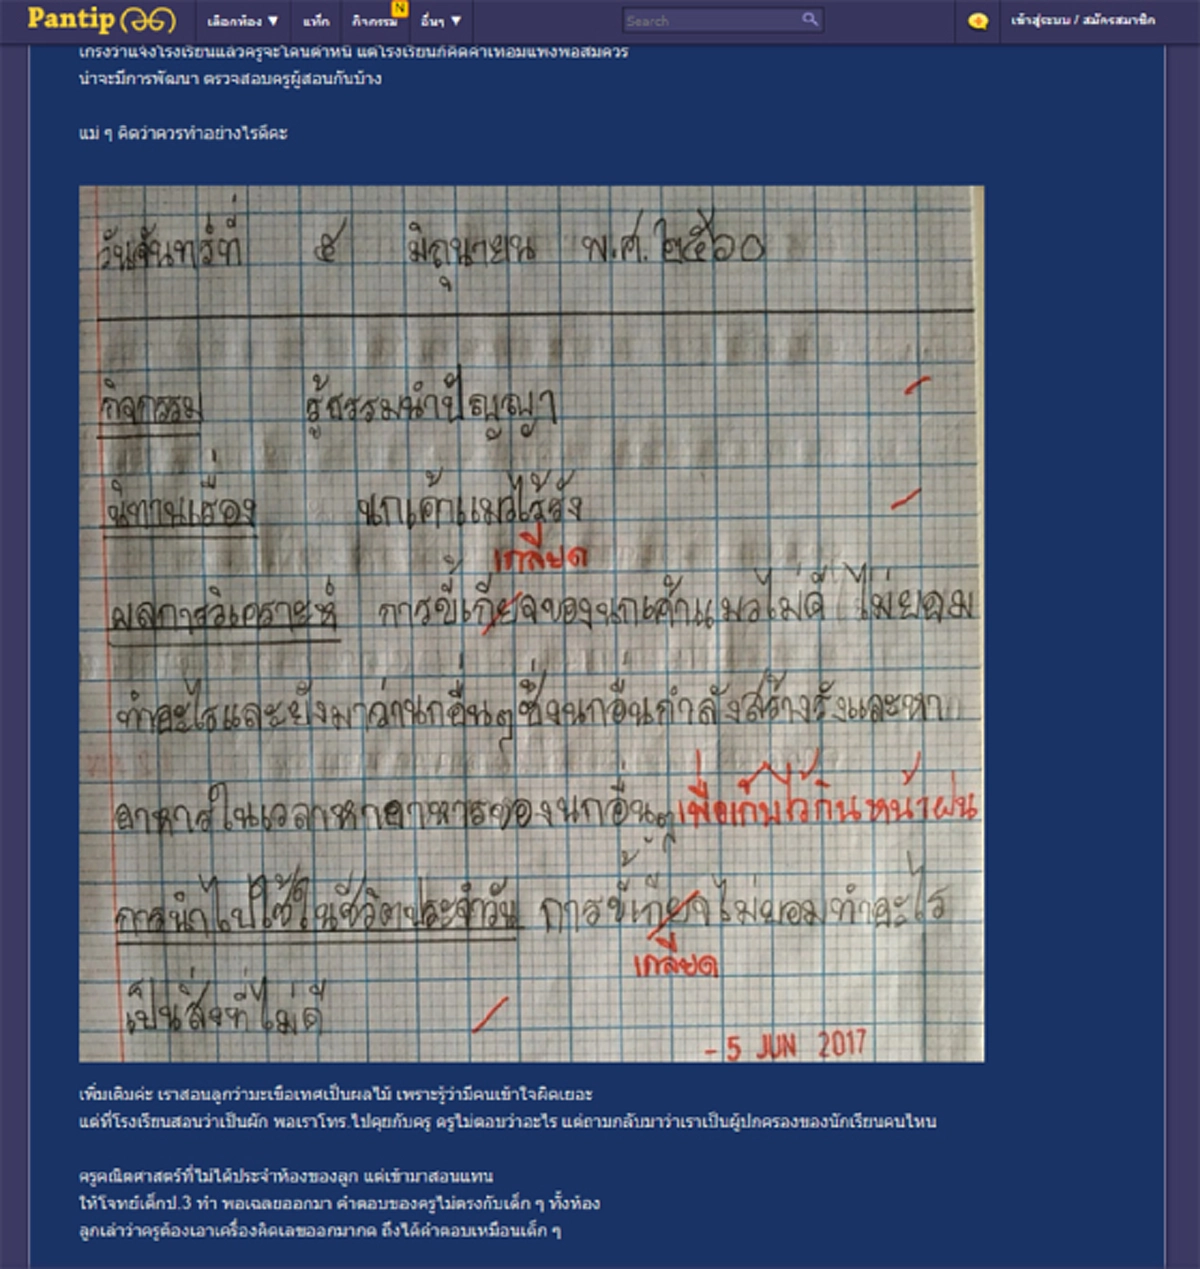 Pantip
เลือกห้อง ▼ แท็ก กิจกรรม N อื่นๆ ▼ Search เข้าสู่ระบบ / สมัครสมาชิก
เกรงว่าแจ้งโรงเรียนแล้วครูจะโดนตำหนิ แต่โรงเรียนก็คิดค่าเทอมแพงพอสมควร
น่าจะมีการพัฒนา ตรวจสอบครูผู้สอนกันบ้าง
แม่ ๆ คิดว่าควรทำอย่างไรดีคะ
วันจันทร์ที่ ๕ มิถุนายน พ.ศ. ๒๕๖๐
กิจกรรม รู้ธรรมนำปัญญา
นิทานเรื่อง นกเค้าแมวไร้รัง
เกลียด
ผลการวิเคราะห์ การขี้เกียจของนกเค้าแมวไม่ดี ไม่ยอม
ทำอะไรและยังมาว่านกอื่นๆ ซึ่งนกอื่นกำลังสร้างรังและหา
อาหารในเวลาหาอาหารของนกอื่นๆ เพื่อเก็บไว้กินหน้าฝน
การนำไปใช้ในชีวิตประจำวัน การขี้เกียจไม่ยอมทำอะไร
เกลียด
เป็นสิ่งที่ไม่ดี
- 5 JUN 2017
เพิ่มเติมค่ะ เราสอนลูกว่ามะเขือเทศเป็นผลไม้ เพราะรู้ว่ามีคนเข้าใจผิดเยอะ
แต่ที่โรงเรียนสอนว่าเป็นผัก พอเราโทร.ไปคุยกับครู ครูไม่ตอบว่าอะไร แต่ถามกลับมาว่าเราเป็นผู้ปกครองของนักเรียนคนไหน
ครูคณิตศาสตร์ที่ไม่ได้ประจำห้องของลูก แต่เข้ามาสอนแทน
ให้โจทย์เด็กป.3 ทำ พอเฉลยออกมา คำตอบของครูไม่ตรงกับเด็ก ๆ ทั้งห้อง
ลูกเล่าว่าครูต้องเอาเครื่องคิดเลขออกมากด ถึงได้คำตอบเหมือนเด็ก ๆ